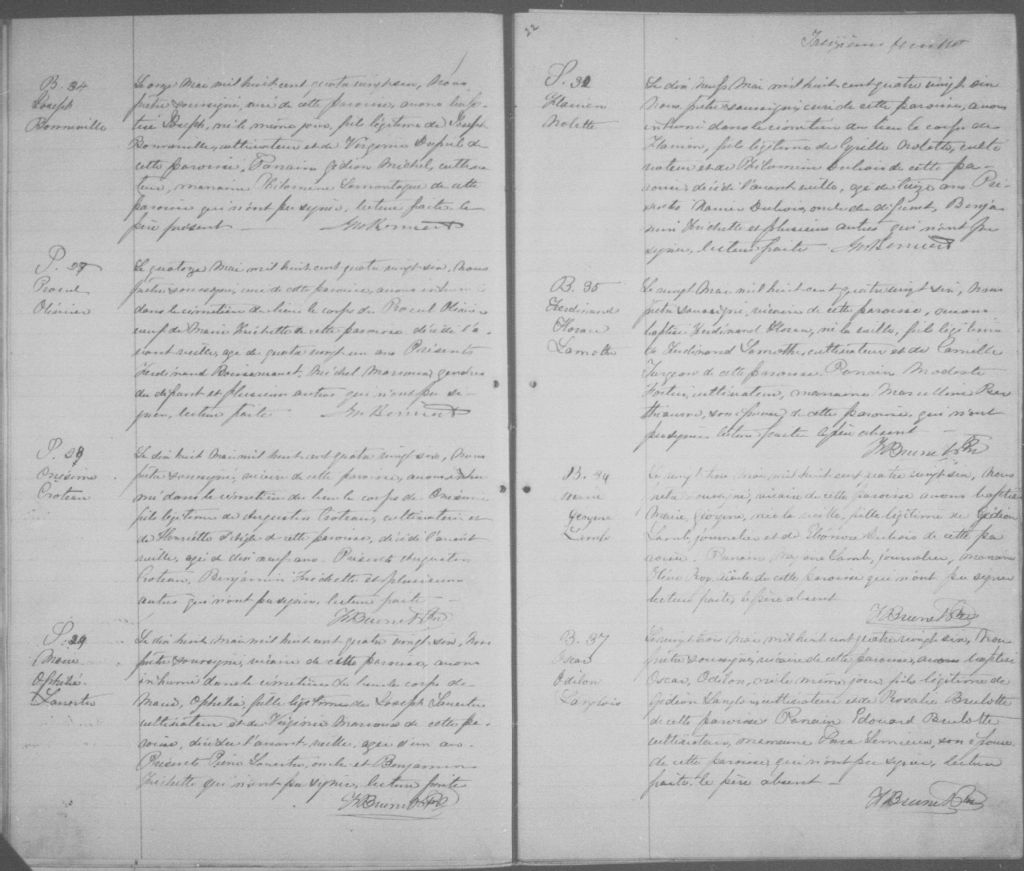 B. 34
Joseph
Bonneville
Le onze Mai mil huit cent quatre vingt six, Nous
prêtre soussigné, curé de cette paroisse, avons bap-
tisé Joseph, né le même jour, fils légitime de Joseph
Bonneville, cultivateur et de Virginie Dupuis de
cette paroisse, Parrain Gédéon Michel, cultiva-
teur, marraine Philomène Lamontagne de cette
paroisse qui n'ont pu signer, lecture faite le
père présent
S. 27
Olivier
Le quatorze Mai mil huit cent quatre vingt six, Nous
prêtre soussigné, curé de cette paroisse, avons inhumé
dans le cimetière du lieu le corps de Olivier
veuf de Marie Fréchette de cette paroisse décédé l'a-
vant veille, agé de quatre vingt un ans Présents
Ferdinand Michel gendres
du défunt et plusieurs autres qui n'ont pu si-
gner, lecture faite
S. 28
Onésime
Croteau
Le dix huit Mai mil huit cent quatre vingt six, Nous
prêtre soussigné, vicaire de cette paroisse, avons inhu-
mé dans le cimetière du lieu le corps de Onésime
fils légitime de Augustin Croteau, cultivateur et
de Henriette de cette paroisse, décédé l'avant
veille, agé de dix neuf ans. Présents Augustin
Croteau, Benjamin Fréchette et plusieurs
autres qui n'ont pu signer, lecture faite
F. X. Brunet Ptre
S. 29
Marie
Ophélie
Le dix huit Mai mil huit cent quatre vingt six, Nous
prêtre soussigné, vicaire de cette paroisse, avons
inhumé dans le cimetière du lieu le corps de
Marie, Ophélia, fille légitime de Joseph
cultivateur et de Virginie de cette pa-
roisse, décédée l'avant veille, agée d'un an.
Présents oncle et Benjamin
Fréchette qui n'ont pu signer, lecture faite
F. X. Brunet Ptre
22
Treizième feuillet
S. 30
Nolette
Le dix neuf Mai mil huit cent quatre vingt six
Nous, prêtre soussigné, curé de cette paroisse, avons
inhumé dans le cimetière du lieu le corps de
fils légitime de Cyrille Nolette, culti-
vateur et de Philomène Dubois de cette pa-
roisse, décédé l'avant veille, agé de ans Pré-
sents Dubois, oncle du défunt, Benja-
min Fréchette et plusieurs autres qui n'ont pu
signer, lecture faite
B. 35
Ferdinand
Lamothe
Le vingt Mai mil huit cent quatre vingt six, Nous
prêtre soussigné, vicaire de cette paroisse, avons
baptisé Ferdinand né la veille, fils légitime
de Ferdinand Lamothe, cultivateur et de Camille
Turgeon de cette paroisse. Parrain Modeste
Fortier, cultivateur, marraine Marcelline
son épouse de cette paroisse, qui n'ont
pu signer lecture faite le père absent
F. X. Brunet Ptre
Marie
Georgina
Lamb
Le vingt trois Mai mil huit cent quatre vingt six, Nous
prêtre soussigné, vicaire de cette paroisse avons baptisé
Marie, Georgina, née la veille, fille légitime de Gédéon
Lamb journalier et de Éléonore Dubois de cette pa-
roisse. Parrain Lamb, journalier, marraine
Roy, de cette paroisse qui n'ont pu signer
lecture faite, le père absent
F. X. Brunet Ptre
B. 37
Oscar
Odilon
Langlois
Le vingt trois Mai mil huit cent quatre vingt six, Nous
prêtre soussigné, vicaire de cette paroisse, avons baptisé
Oscar, Odilon, né le même jour, fils légitime de
Gédéon Langlois cultivateur et de Rosalie Brulotte
de cette paroisse Parrain Edouard Brulotte
cultivateur, marraine Lemieux, son épouse
de cette paroisse qui n'ont pu signer, lecture
faite. le père absent
F. X. Brunet Ptre